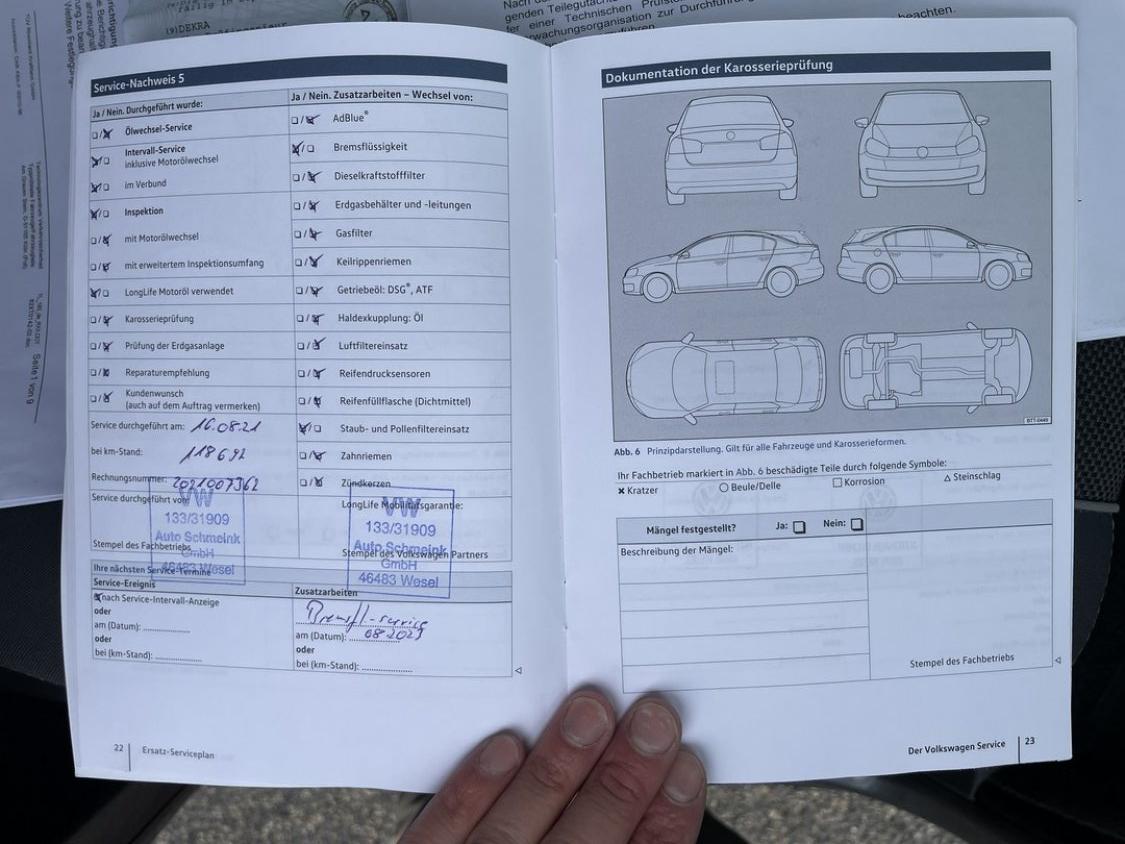 (9)DEKRA
beachten.
Service-Nachweis 5
Ja / Nein. Durchgeführt wurde:
Ölwechsel-Service
Intervall-Service
inklusive Motorölwechsel
im Verbund
Inspektion
mit Motorölwechsel
mit erweitertem Inspektionsumfang
LongLife Motoröl verwendet
Karosserieprüfung
Prüfung der Erdgasanlage
Reparaturempfehlung
Kundenwunsch
(auch auf dem Auftrag vermerken)
Service durchgeführt am: 16.08.21
bei km-Stand: 118692
Rechnungsnummer: 2021007362
Service durchgeführt von:
VW
133/31909
Auto Schmeink
GmbH
46483 Wesel
Stempel des Fachbetriebs
Ja / Nein. Zusatzarbeiten – Wechsel von:
AdBlue®
Bremsflüssigkeit
Dieselkraftstofffilter
Erdgasbehälter und -leitungen
Gasfilter
Keilrippenriemen
Getriebeöl: DSG®, ATF
Haldexkupplung: Öl
Luftfiltereinsatz
Reifendrucksensoren
Reifenfüllflasche (Dichtmittel)
Staub- und Pollenfiltereinsatz
Zahnriemen
Zündkerzen
LongLife Mobilitätsgarantie:
VW
133/31909
Auto Schmeink
GmbH
46483 Wesel
Stempel des Volkswagen Partners
Ihre nächsten Service-Termine
Service-Ereignis
nach Service-Intervall-Anzeige
oder
am (Datum):
oder
bei (km-Stand):
Zusatzarbeiten
Bremsfl-service
am (Datum): 08 2023
oder
bei (km-Stand):
22 Ersatz-Serviceplan
Dokumentation der Karosserieprüfung
Abb. 6 Prinzipdarstellung. Gilt für alle Fahrzeuge und Karosserieformen.
Ihr Fachbetrieb markiert in Abb. 6 beschädigte Teile durch folgende Symbole:
Kratzer Beule/Delle Korrosion Steinschlag
Mängel festgestellt? Ja: Nein:
Beschreibung der Mängel:
Stempel des Fachbetriebs
Der Volkswagen Service 23